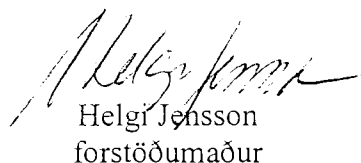 Helgi Jensson
Helgi Jensson
forstöðumaður